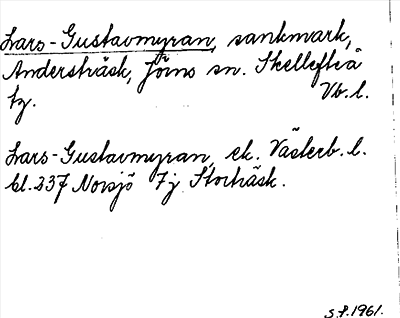 Lars-Gustavmyran, sankmark,
Andersträsk, Jörns sn. Skellefteå
tg. Vb.l.
Lars-Gustavmyran, ek. Västerb. l.
bl. 237 Norsjö 7j Storträsk.
S.P. 1961.